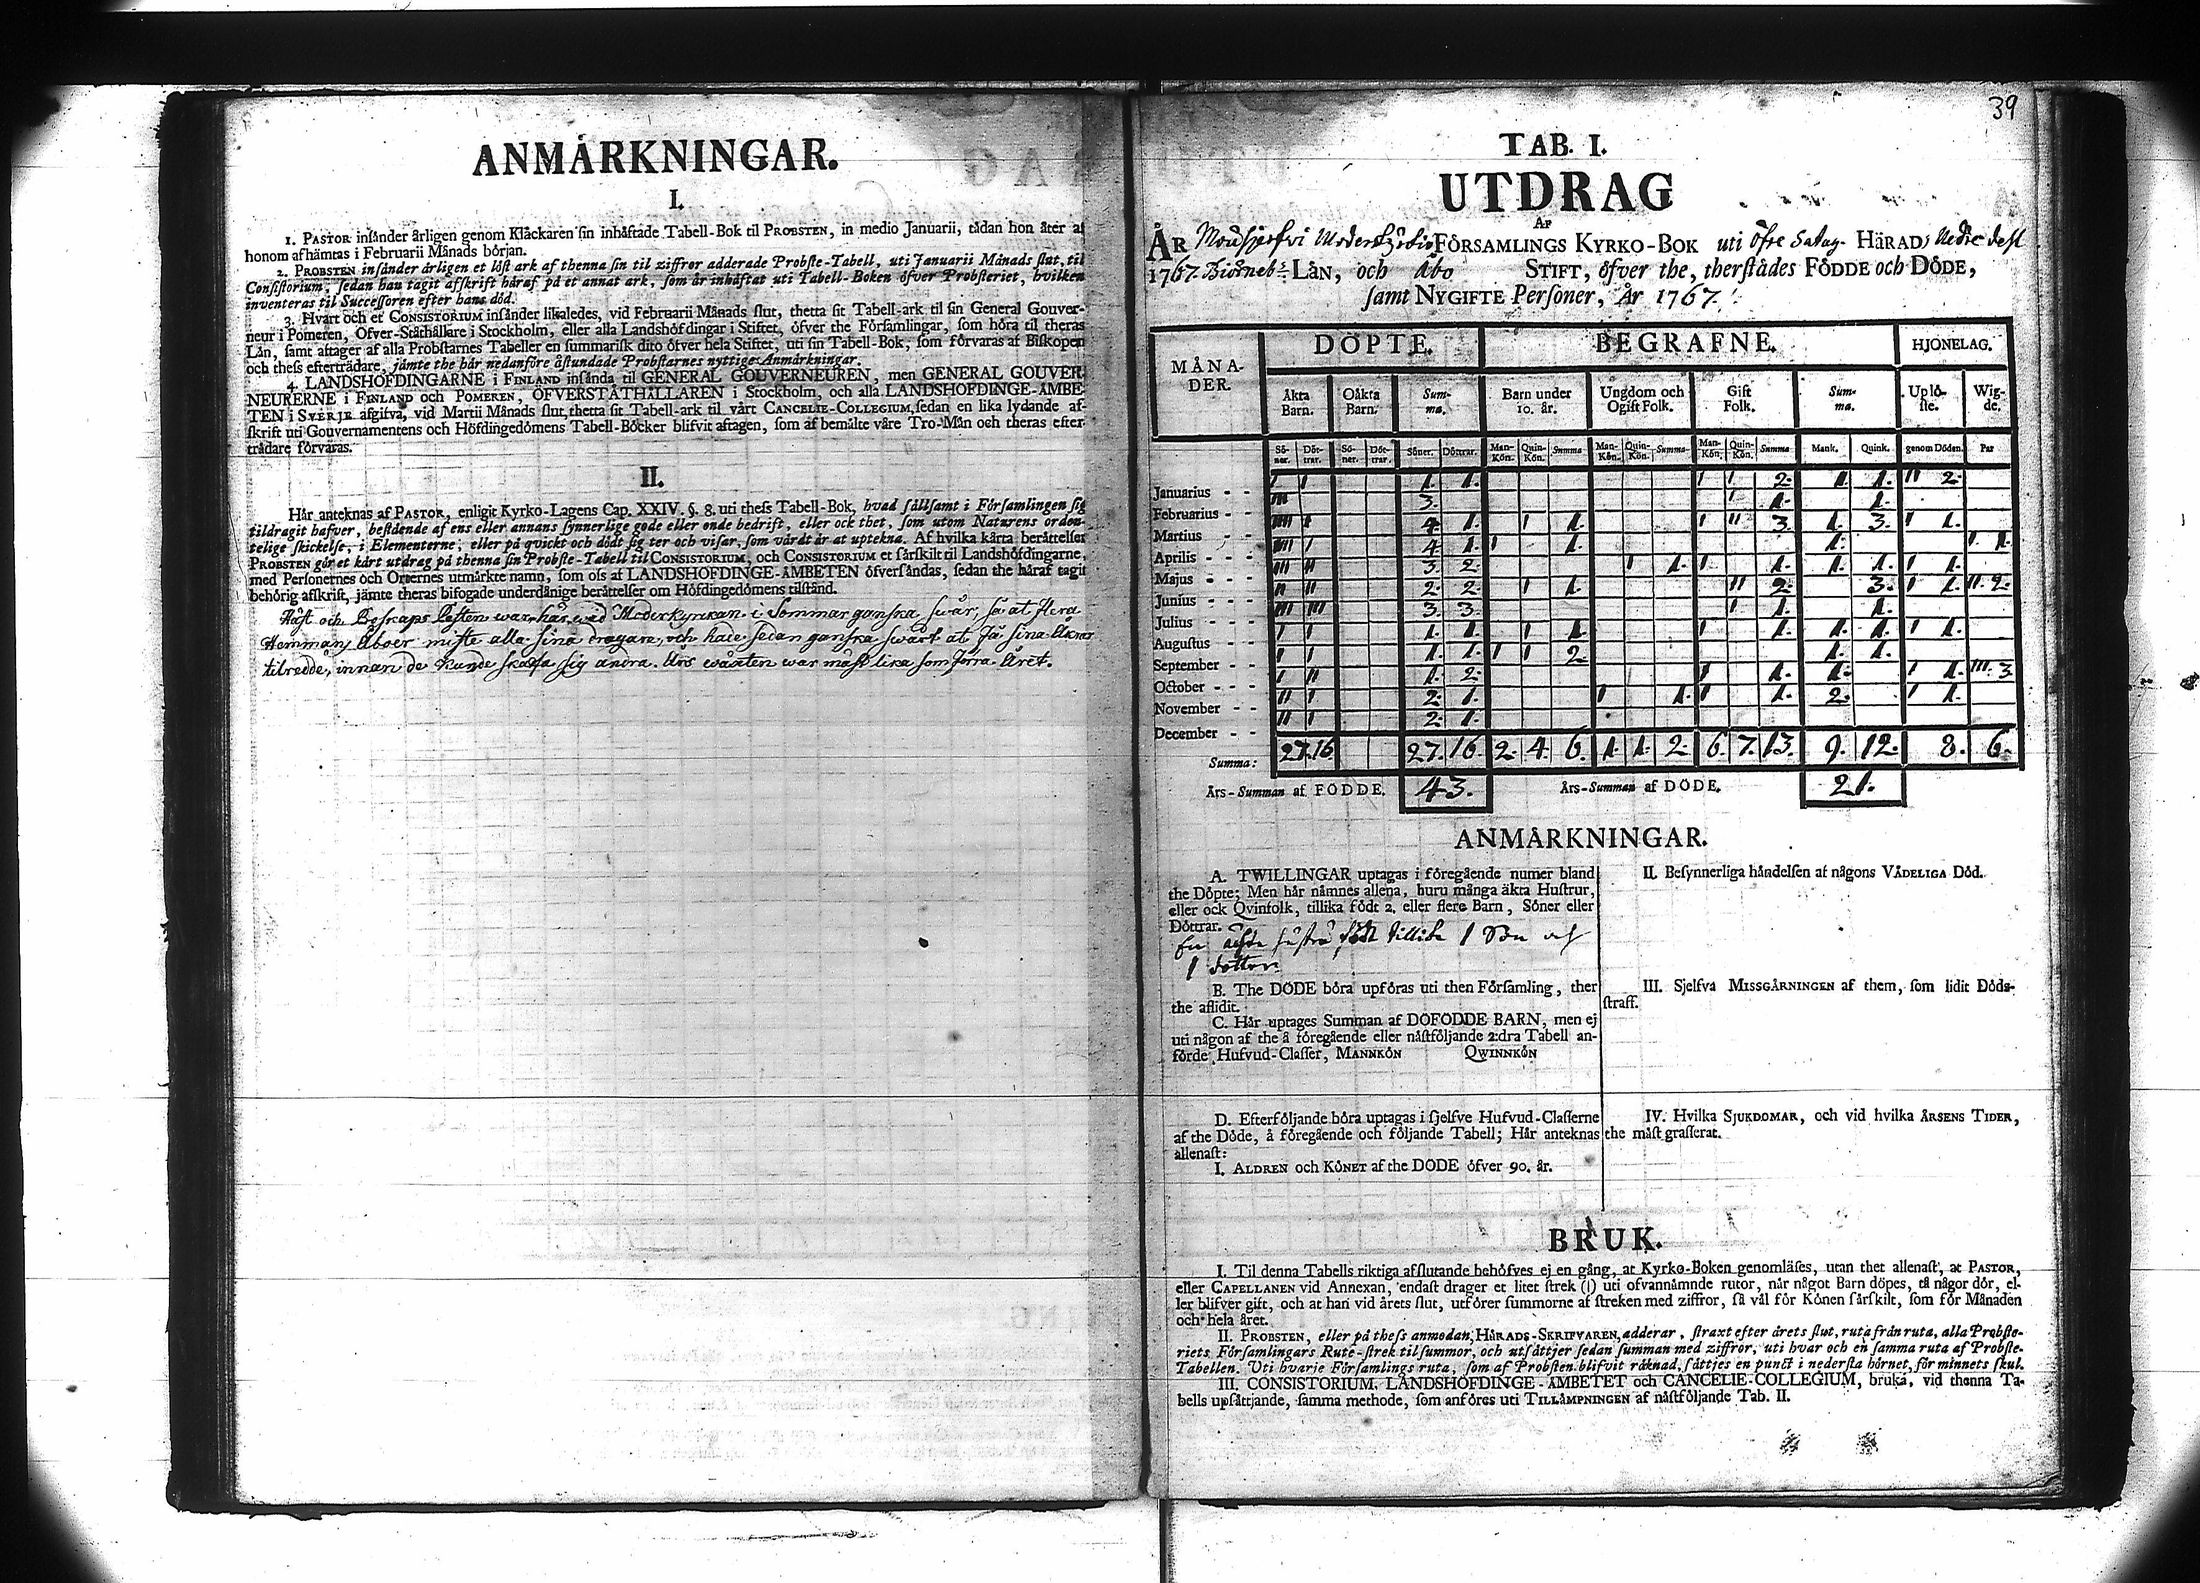 ANMÄRKNINGAR.
I.
1. PASTOR insånder årligen genom Klåckaren sin inhåftade Tabell-Bok til PROBSTEN, in medio Januarii, tådan hon åter af
honom afhämtas i Februarii Månads början.
2. PROBSTEN insånder årligen et löst ark af thenna sin til ziffror adderade Probste-Tabell, uti Januarii Månads slut, til
Consistorium, sedan han tagit afskrift håraf på et annat ark, som år inhåftat uti Tabell-Boken öfver Probsteriet, hvilken
inventeras til Successoren efter hans död.
3. Hvart och et CONSISTORIUM insånder likaledes, vid Februarii Månads slut, thetta sit Tabell-ark til sin General Gouver-
neur i Pomeren, Öfver-Ståthållare i Stockholm, eller alla Landshöfdingar i Stiftet, öfver the Församlingar, som höra til theras
Lån, samt aftager af alla Probstarnes Tabeller en summarisk dito öfver hela Stiftet, uti sin Tabell-Bok, som förvaras af Biskopen
och thess efterträdare, jämte the hår nedanföre åstundade Probstarnes nyttige Anmårkningar.
4. LANDSHÖFDINGARNE i FINLAND insånda til GENERAL GOUVERNEUREN, men GENERAL GOUVER-
NEURERNE i FINLAND och POMEREN, ÖFVERSTÅTHÅLLAREN i Stockholm, och alla LANDSHÖFDINGE-ÅMBE-
TEN i SVERJE afgifva, vid Martii Månads slut, thetta sit Tabell-ark til vårt CANCELIE-COLLEGIUM, sedan en lika lydande af-
skrift uti Gouvernamentens och Höfdingedömens Tabell-Böcker blifvit aftagen, som af bemålte våre Tro-Mån och theras efter-
trådare förvaras.
II.
Hår anteknas af PASTOR, enligit Kyrko-Lagens Cap. XXIV. §. 8. uti thess Tabell-Bok, hvad sållsamt i Församlingen sig
tildragit hafver, bestående af ens eller annans synnerlige gode eller onde bedrift, eller ock thet, som utom Naturens orden-
telige skickelse, i Elementerne, eller på qvickt och dödt sig ter och visar, som vårdt år at uptekna. Af hvilka kårta beråttelser
PROBSTEN gör et kårt utdrag på thenna sin Probste-Tabell til CONSISTORIUM, och CONSISTORIUM et sårskilt til Landshöfdingarne,
med Personernes och Orternes utmårkte namn, som oss af LANDSHÖFDINGE-ÅMBETEN öfversåndas, sedan the håraf tagit
behörig afskrift, jämte theras bifogade underdånige beråttelser om Höfdingedömens tilstånd.
Häst och Boskaps Pesten war här, wid Moderkyrkan i Sommar ganska swår, så at flera
Hemmans Åboer miste alla sina dragare, och hade sedan ganska swårt at få sina Åkrar
tilredde, innan de kunde skaffa sig andra. Års wäxten war mäst lika som förra Året.
39
TAB. I.
UTDRAG
AF
ÅR Mouhijerfvi Moderkyrkio FÖRSAMLINGS KYRKO-BOK uti öfre Satag. HÄRAD, Nedre dell
1767. Biörneb:s LÅN, och Åbo STIFT, öfver the, therstådes FÖDDE och DÖDE,
samt NYGIFTE Personer, År 1767.
MÅNA-DER. DÖPTE. BEGRAFNE. HJONELAG.
Åkta Barn. Oåkta Barn. Sum-ma. Barn under 10. år. Ungdom och Ogift Folk. Gift Folk. Sum-ma. Uplö-ste. Wig-de.
Sö-ner. Döt-trar. Sö-ner. Döt-trar. Söner. Döttrar. Man-Kön. Quin-Kön. Summa Man-Kön. Quin-Kön. Summa Man-Kön. Quin-Kön. Summa Mank. Quink. genom Döden. Par
Januarius - - I I 1. 1. I I 2. 1. 1. II 2.
Februarius - - III 3. I 1. 1.
Martius - - IIII I 4. 1. I 1. I II 3. 1. 3. I 1.
Aprilis - - IIII I 4. 1. I 1. 1. I 1.
Majus - - III II 3. 2. I 1. I 1. 1. 1. I 1.
Junius - - II II 2. 2. I 1. II 2. 3. I 1. II. 2.
Julius - - III III 3. 3. I 1. 1.
Augustus - - I I 1. 1. I 1. I 1. 1. 1. I 1.
September - - I I 1. 1. I I 2. 1. 1.
October - - I II 1. 2. I 1. 1. I 1. III. 3.
November - - II I 2. 1. I 1. I 1. 2. I 1.
December - - II I 2. 1.
Summa: 27. 16 27. 16. 2. 4. 6. 1. 1. 2. 6. 7. 13. 9. 12. 8. 6.
Års-Summan af FÖDDE. 43. Års-Summan af DÖDE. 21.
ANMÄRKNINGAR.
A. TWILLINGAR uptagas i föregående numer bland
the Döpte; Men hår nåmnes allena, huru många åkta Hustrur,
eller ock Qvinfolk, tillika födt 2. eller flere Barn, Söner eller
Döttrar.
En ächta hustru födt tillika 1 Son och
1 dotter.
B. The DÖDE böra upföras uti then Församling, ther
the aflidit.
C. Hår uptages Summan af DÖFÖDDE BARN, men ej
uti någon af the å föregående eller nåstföljande 2:dra Tabell an-
förde Hufvud-Classer, MANNKÖN QWINNKÖN
D. Efterföljande böra uptagas i sjelfve Hufvud-Classerne
af the Döde, å föregående och följande Tabell; Hår anteknas
allenast:
I. ÅLDREN och KÖNET af the DÖDE öfver 90. år.
II. Besynnerliga håndelsen af någons VÅDELIGA Död.
III. Sjelfva MISSGÅRNINGEN af them, som lidit Döds-
straff.
IV. Hvilka SJUKDOMAR, och vid hvilka ÅRSENS TIDER,
the måst grasserat.
BRUK.
I. Til denna Tabells riktiga afslutande behöfves ej en gång, at Kyrko-Boken genomlåses, utan thet allenast, at PASTOR,
eller CAPELLANEN vid Annexan, endast drager et litet strek (|) uti ofvannåmnde rutor, når något Barn döpes, tå någor dör, el-
ler blifver gift, och at han vid årets slut, utförer summorne af streken med ziffror, så vål för Könen sårskilt, som för Månaden
och hela året.
II. PROBSTEN, eller på thess anmodan, HÅRADS-SKRIFVAREN, adderar, straxt efter årets slut, ruta från ruta, alla Probste-
riets Församlingars Rute-strek til summor, och utsåttjer sedan summan med ziffror, uti hvar och en samma ruta af Probste-
Tabellen. Uti hvarje Församlings ruta, som af Probsten blifvit råknad, såttjes en punct i nedersta hörnet, för minnets skul.
III. CONSISTORIUM, LANDSHÖFDINGE-ÅMBETET och CANCELIE-COLLEGIUM, bruka, vid thenna Ta-
bells upsåttjande, samma methode, som anföres uti TILLÅMPNINGEN af nåstföljande Tab. II.